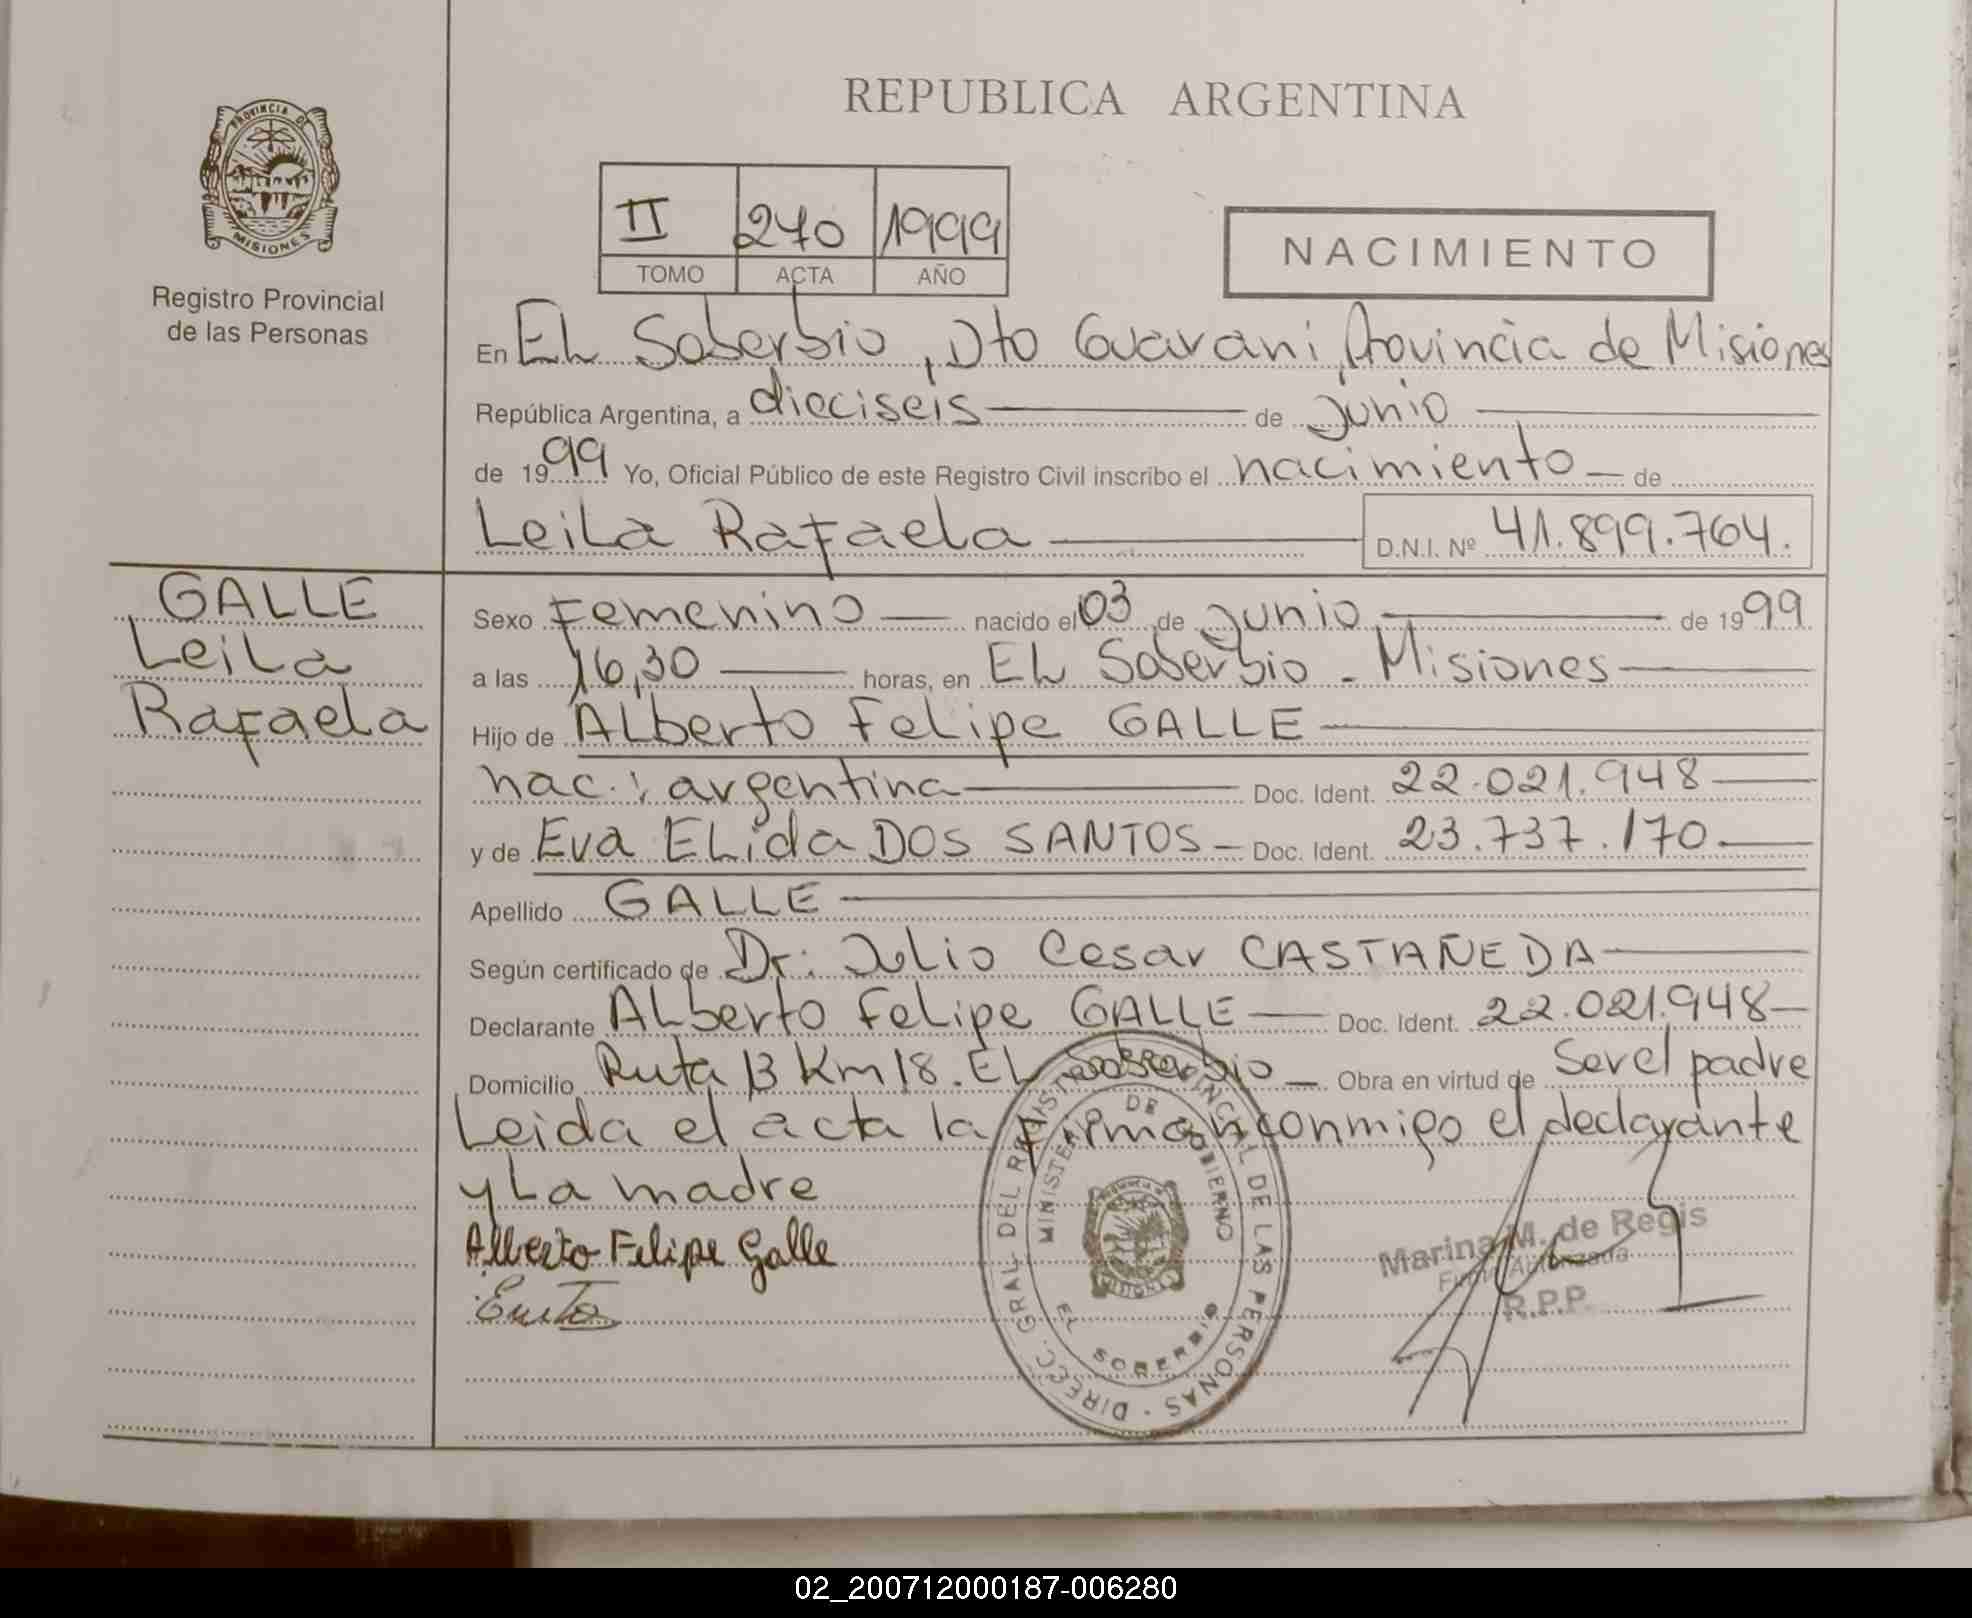 REPUBLICA ARGENTINA
PROVINCIA DE
MISIONES
Registro Provincial
de las Personas
II 270 1999
TOMO ACTA AÑO
NACIMIENTO
En EL Soberbio, Dto Guarani, Provincia de Misiones
República Argentina, a dieciseis de junio
de 1999 Yo, Oficial Público de este Registro Civil inscribo el nacimiento de
Leila Rafaela D.N.I. Nº 41.899.764.
GALLE
Leila
Rafaela
Sexo Femenino nacido el 03 de junio de 1999
a las 16,30 horas, en EL Soberbio - Misiones
Hijo de ALberto FeLipe GALLE
nac.: argentina Doc. Ident. 22.021.948
y de Eva ELida DOS SANTOS Doc. Ident. 23.737.170
Apellido GALLE
Según certificado de Dr: Julio Cesar CASTAÑEDA
Declarante ALberto FeLipe GALLE Doc. Ident. 22.021.948
Domicilio Ruta 13 Km 18. EL Soberbio Obra en virtud de Ser el padre
Leida el acta la firman conmigo el declarante
y La madre
Alberto Felipe Galle
DIREC. GRAL DEL REGISTRO PROVINCIAL DE LAS PERSONAS
MINISTERIO DE GOBIERNO
EL SOBERBIO
Marina M. de Regis
R.P.P.
02_200712000187-006280